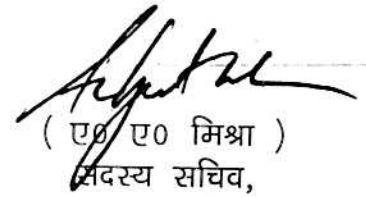 ( ए० ए० मिश्रा )
सदस्य सचिव,